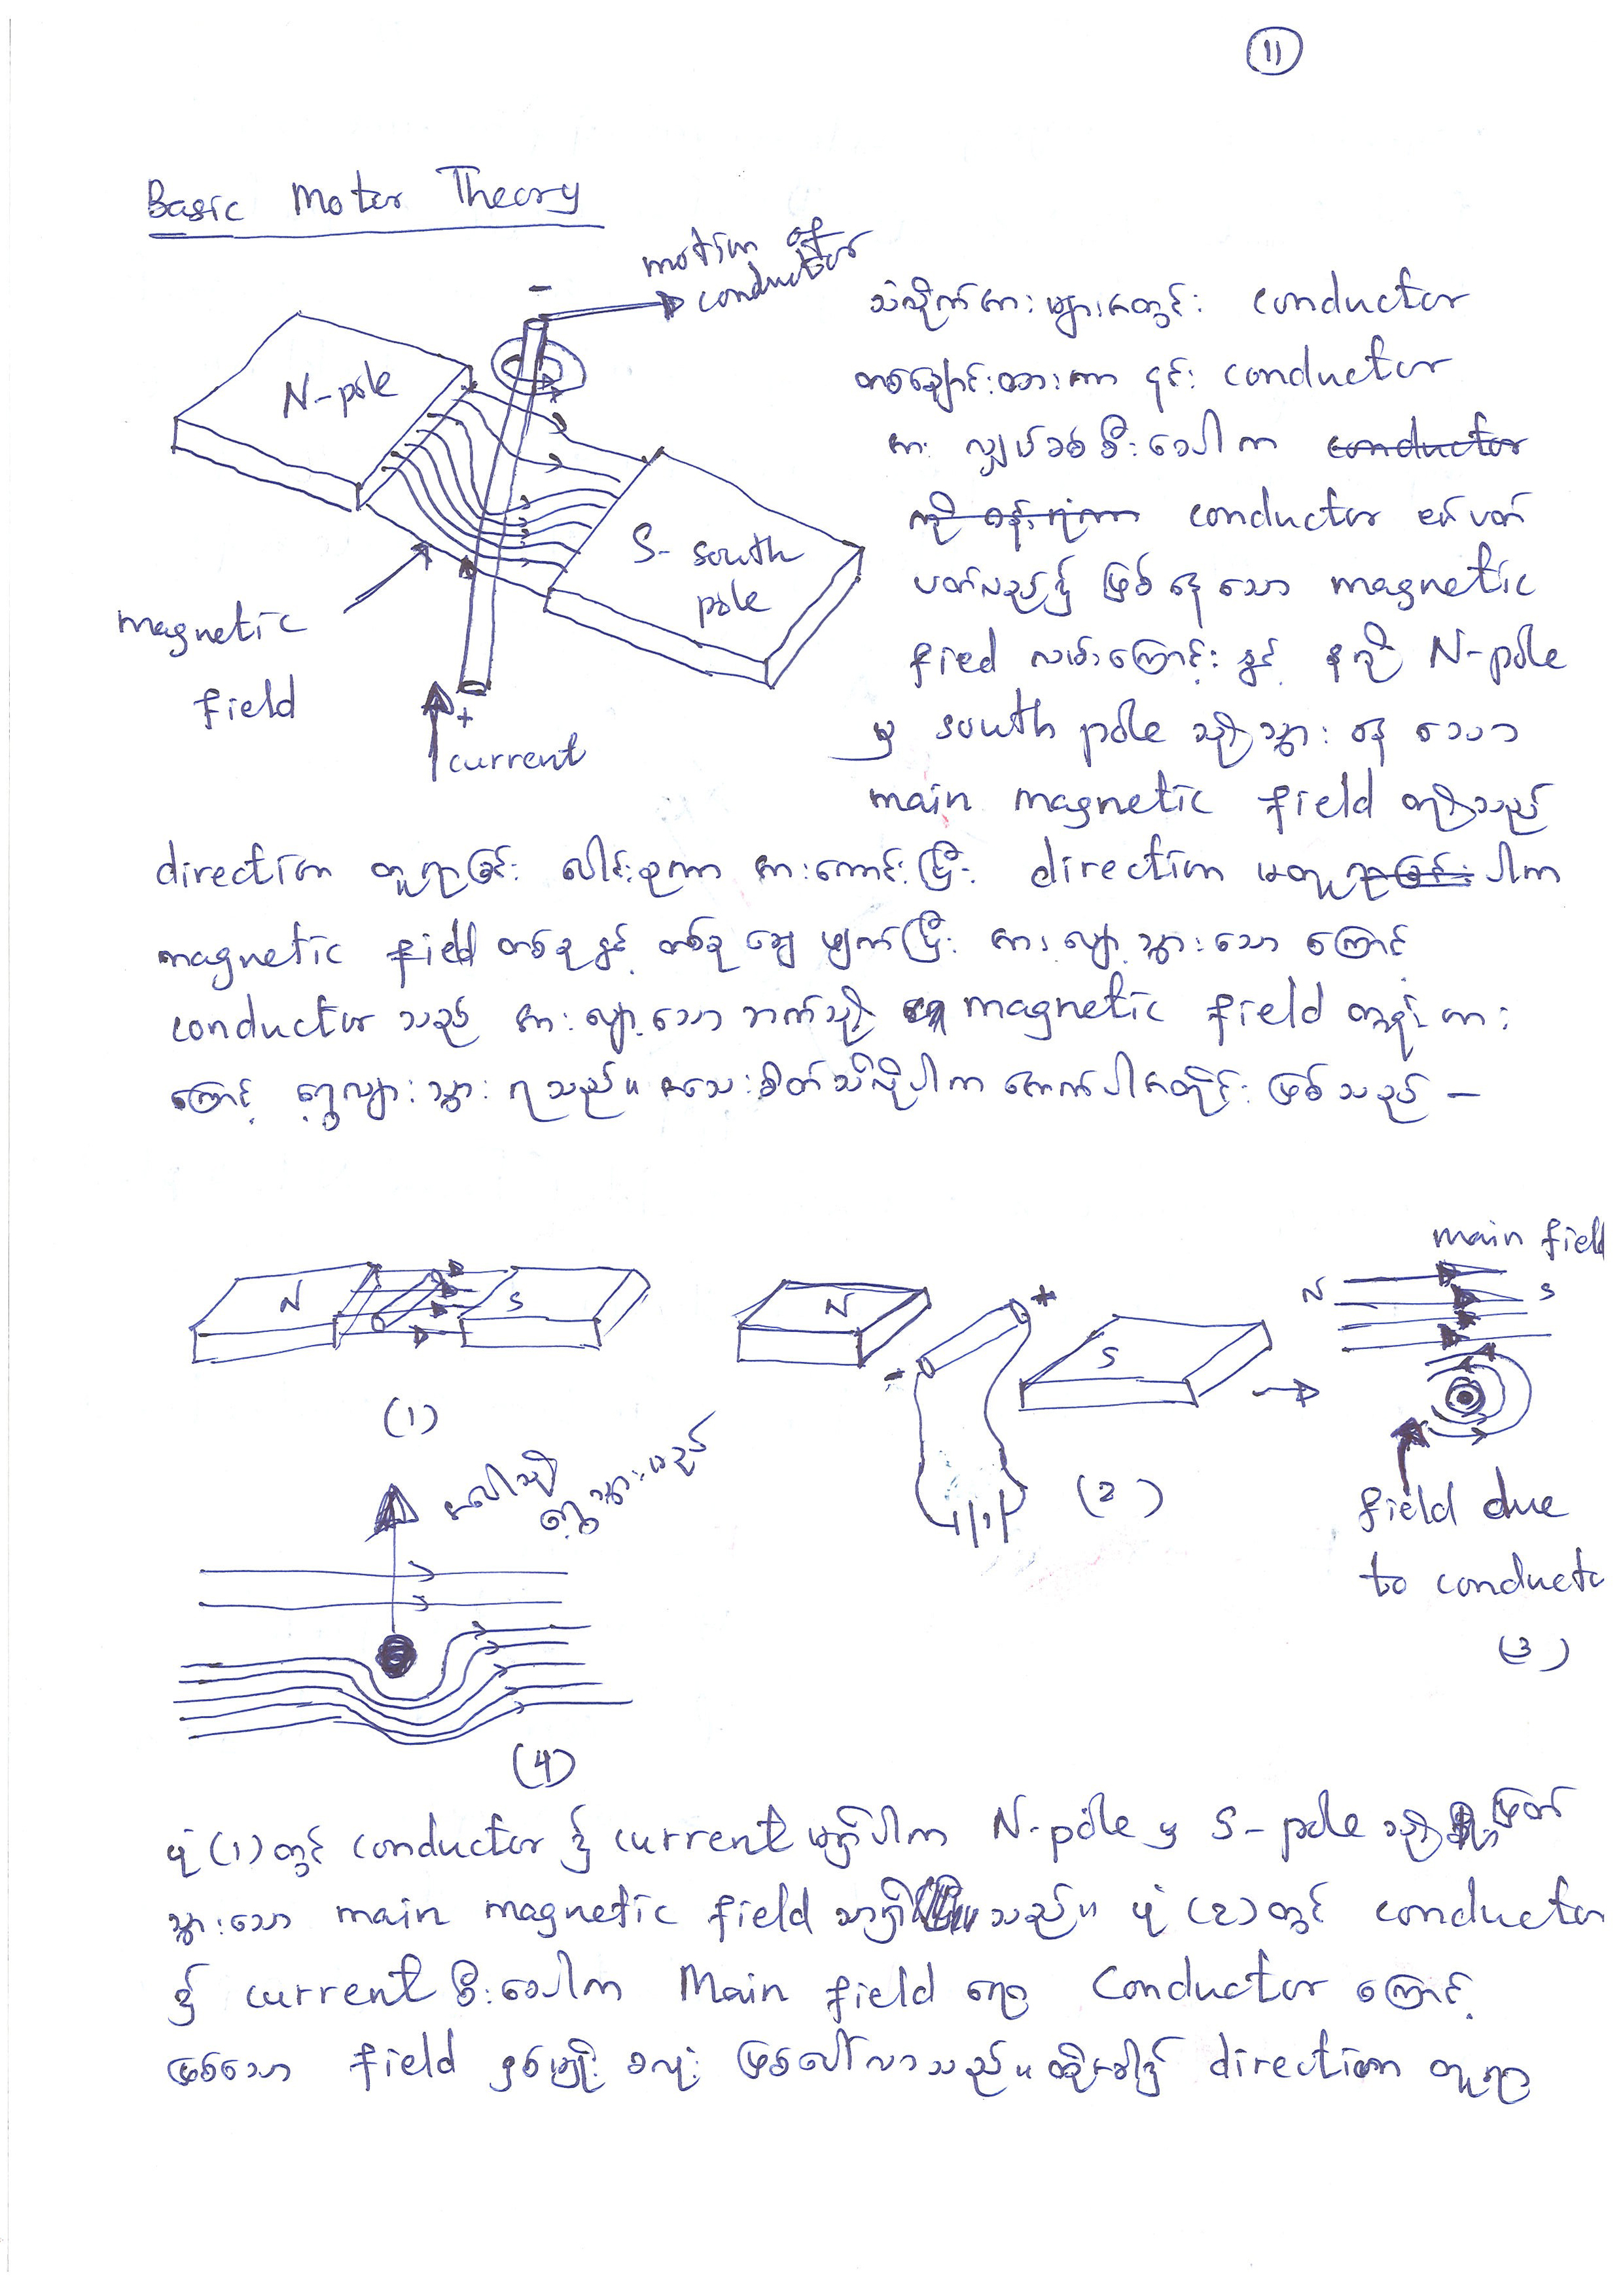 11
Basic Motor Theory
motion of
conductor
-
N-pole
S- south
pole
magnetic
field
+
current
သံလိုက်အားများအတွင်း conductor
တစ်ချောင်းထားကာ ၎င်း conductor
အား လျှပ်စစ်စီးစေပါက conductor
ကို conductor ပတ်ပတ်
ပတ်လည်၌ ဖြစ်နေသော magnetic
fied လမ်းကြောင်းနှင့် နဂို N-pole
မှ south pole သို့သွားနေသော
main magnetic field တို့သည်
direction တူရာခြင်း ပေါင်းစုကာ အားကောင်းပြီး direction မတူရာခြင်းပါက
magnetic field တစ်ခုနှင့် တစ်ခု ချေဖျက်ပြီး အားလျော့သွားသောကြောင့်
conductor သည် အားလျော့သောဘက်သို့ magnetic field တွန်းအား
ကြောင့် ရွေ့လျားသွားရသည်။ အသေးစိတ်သိလိုပါက အောက်ပါအတိုင်းဖြစ်သည် –
N
S
(1)
N
+
-
S
(2)
main field
N
S
field due
to conducto
(3)
အပေါ်သို့
ရွေ့သွားမည်
(4)
ပုံ (1) တွင် conductor ၌ current မရှိပါက N-pole မှ S-pole သို့ ဖြတ်
သွားသော main magnetic field သာရှိသည်။ ပုံ (2) တွင် conductor
၌ current စီးစေပါက Main field ရော Conductor ကြောင့်
ဖြစ်သော field နှစ်မျိုးစလုံး ဖြစ်ပေါ်လာသည်။ ထိုအခါ၌ direction တူရာ